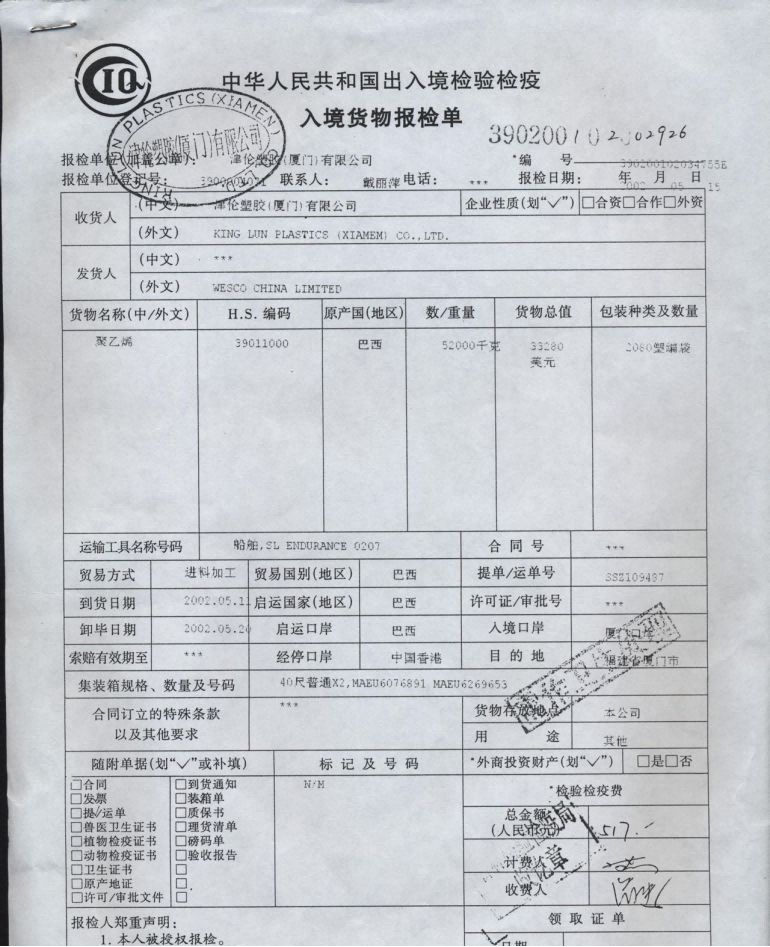 CIQ
中华人民共和国出入境检验检疫
入境货物报检单
报检单位(加盖公章): 津伦塑胶(厦门)有限公司 *编 号 390200102034755E
报检单位登记号: 联系人: 戴丽萍 电话: *** 报检日期: 2002年05月15
收货人 (中文) 津伦塑胶(厦门)有限公司 企业性质(划“✓”) □合资□合作□外资
(外文) KING LUN PLASTICS (XIAMEM) CO.,LTD.
发货人 (中文) ***
(外文) WESCO CHINA LIMITED
货物名称(中/外文) H.S. 编码 原产国(地区) 数/重量 货物总值 包装种类及数量
聚乙烯 39011000 巴西 52000千克 33280 2080塑编袋
美元
运输工具名称号码 船舶,SL ENDURANCE 0207 合同号 ***
贸易方式 进料加工 贸易国别(地区) 巴西 提单/运单号 SSZ109497
到货日期 2002.05.11 启运国家(地区) 巴西 许可证/审批号 ***
卸毕日期 2002.05.20 启运口岸 巴西 入境口岸 厦门口岸
索赔有效期至 *** 经停口岸 中国香港 目的地 福建省厦门市
集装箱规格、数量及号码 40尺普通X2,MAEU6076891 MAEU6269653
合同订立的特殊条款 *** 货物存放地点 本公司
以及其他要求 用途 其他
随附单据(划“✓”或补填) 标记及号码 *外商投资财产(划“✓”) □是□否
□合同 □到货通知 N/M *检验检疫费
□发票 □装箱单
□提/运单 □质保书 总金额
□兽医卫生证书 □理货清单 (人民币元) 517.-
□植物检疫证书 □磅码单
□动物检疫证书 □验收报告 计费人
□卫生证书 □
□原产地证 □ 收费人
□许可/审批文件 □
报检人郑重声明: 领取证单
1. 本人被授权报检。 日期